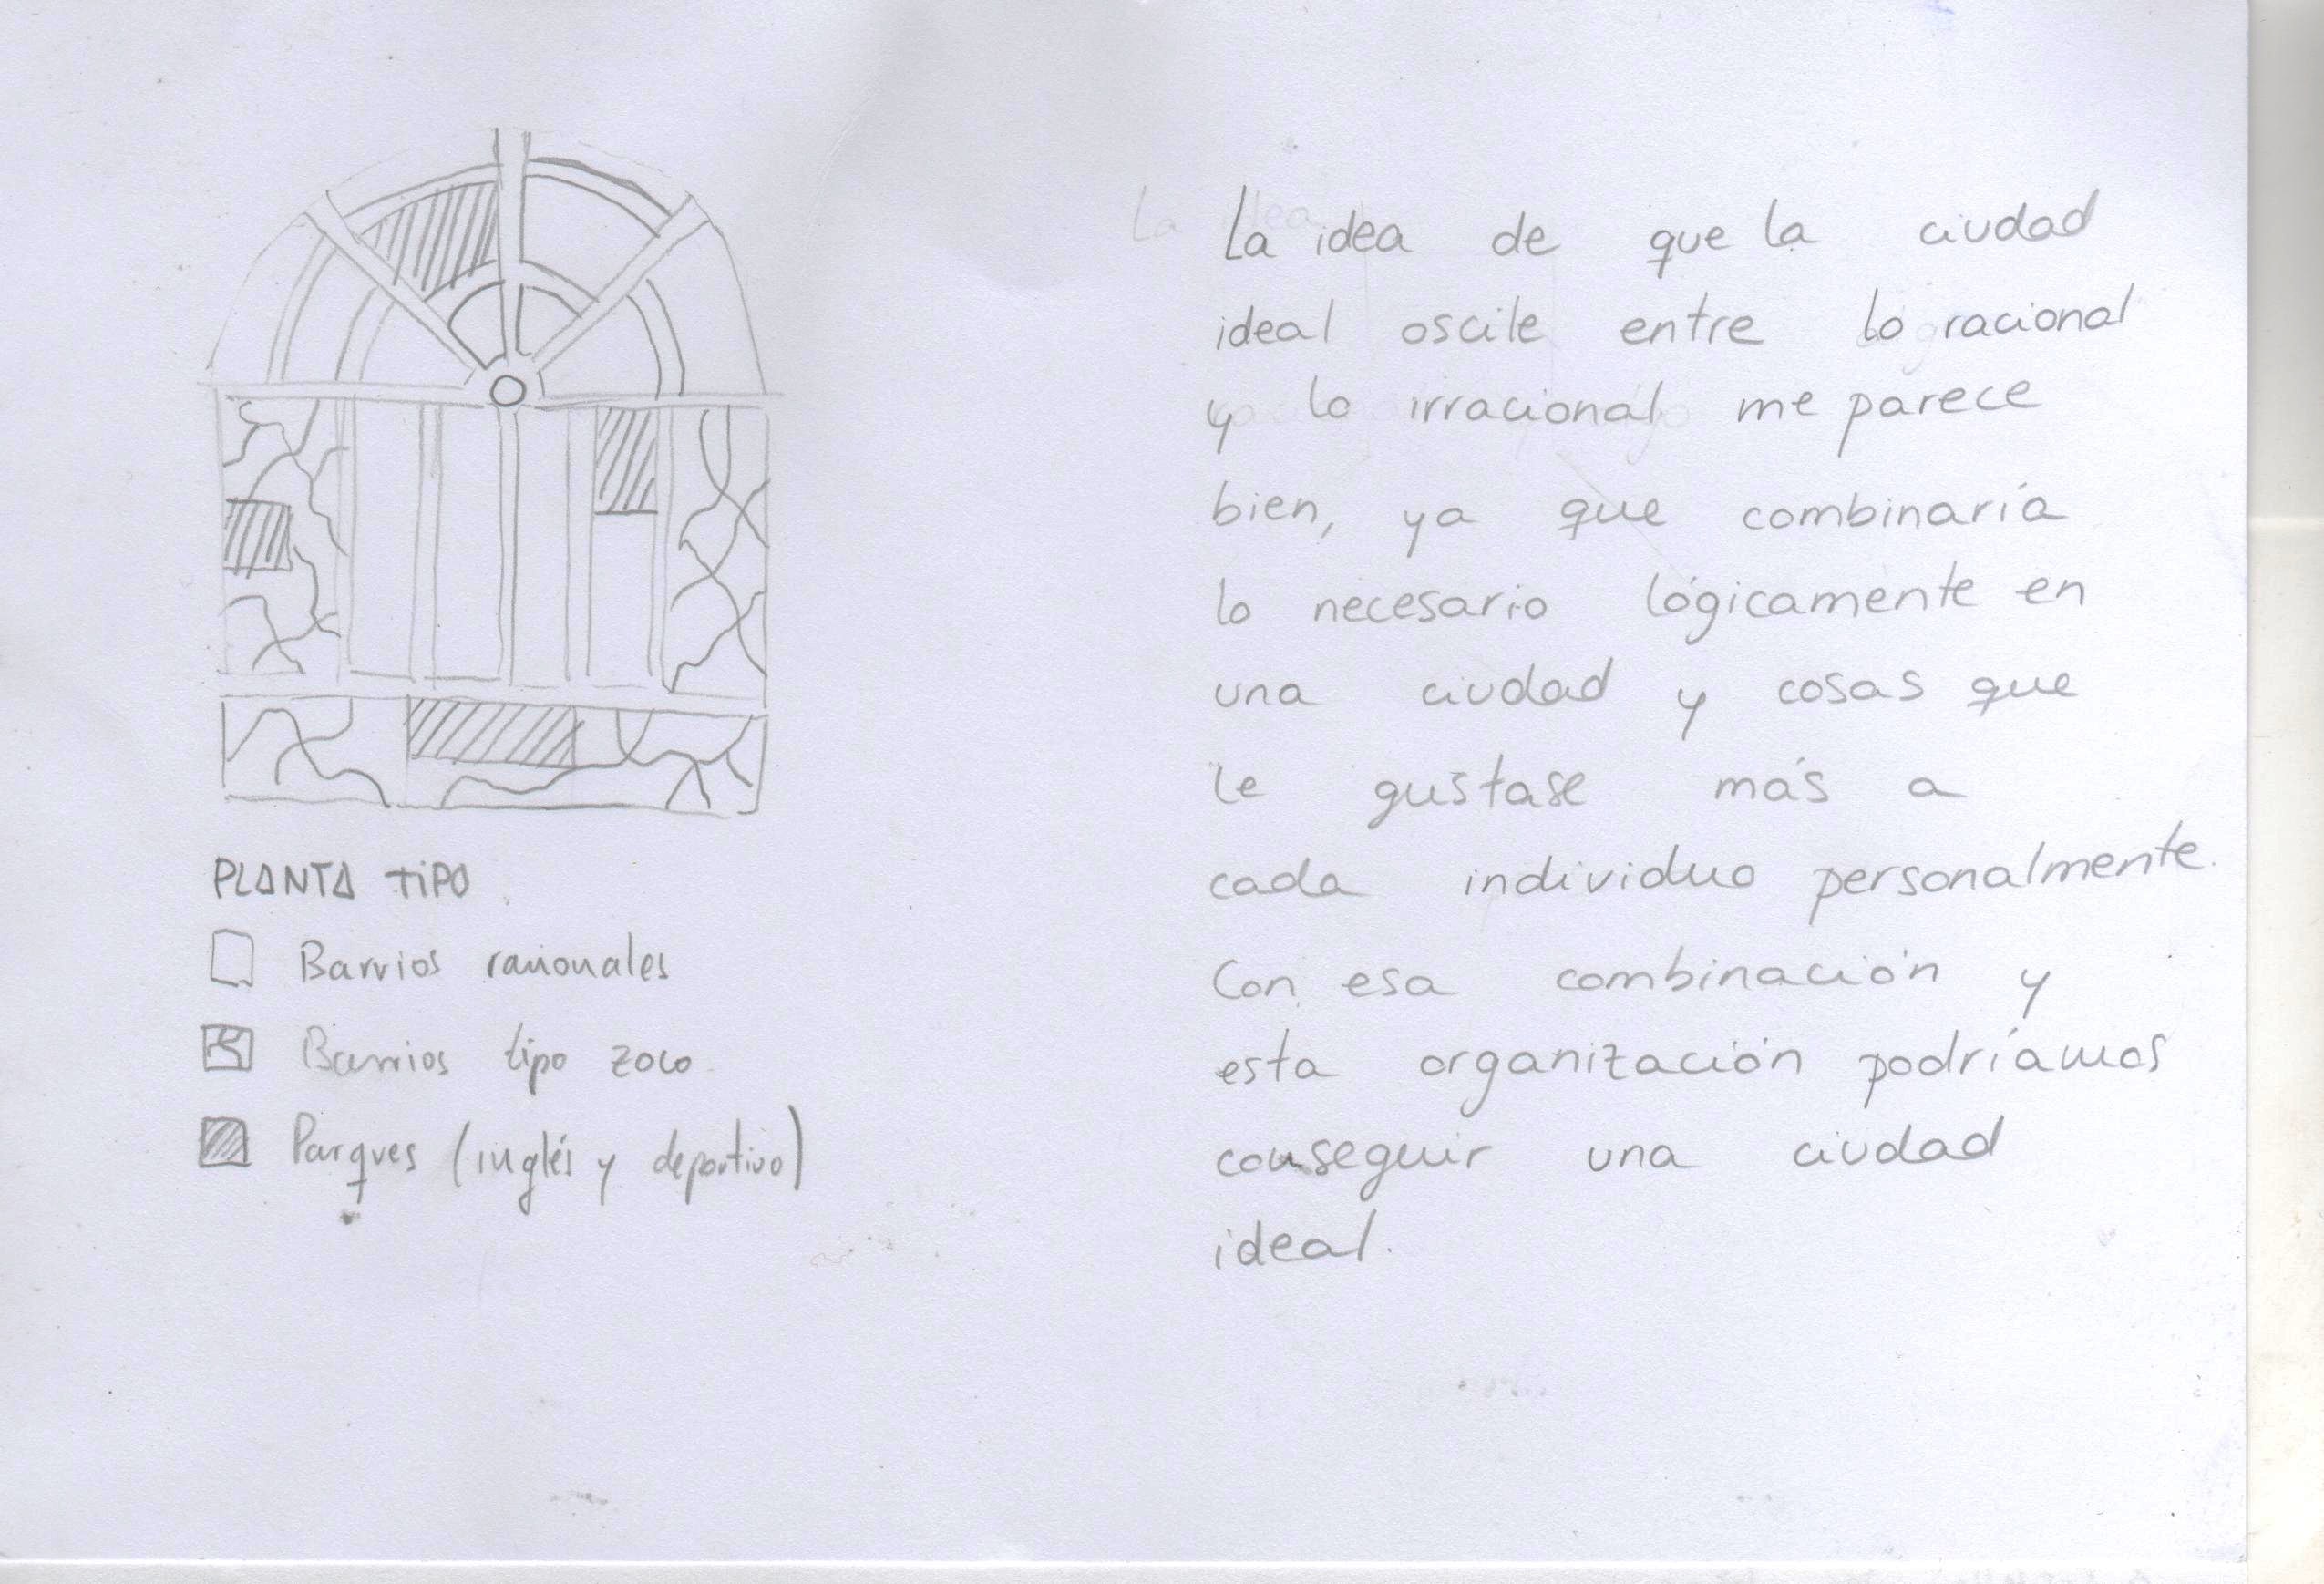 PLANTA TIPO
Barrios racionales
Barrios tipo zoco
Parques (inglés y deportivo)
La idea de que la ciudad
ideal oscile entre lo racional
y lo irracional me parece
bien, ya que combinaría
lo necesario lógicamente en
una ciudad y cosas que
le gustase más a
cada individuo personalmente.
Con esa combinación y
esta organización podríamos
conseguir una ciudad
ideal.